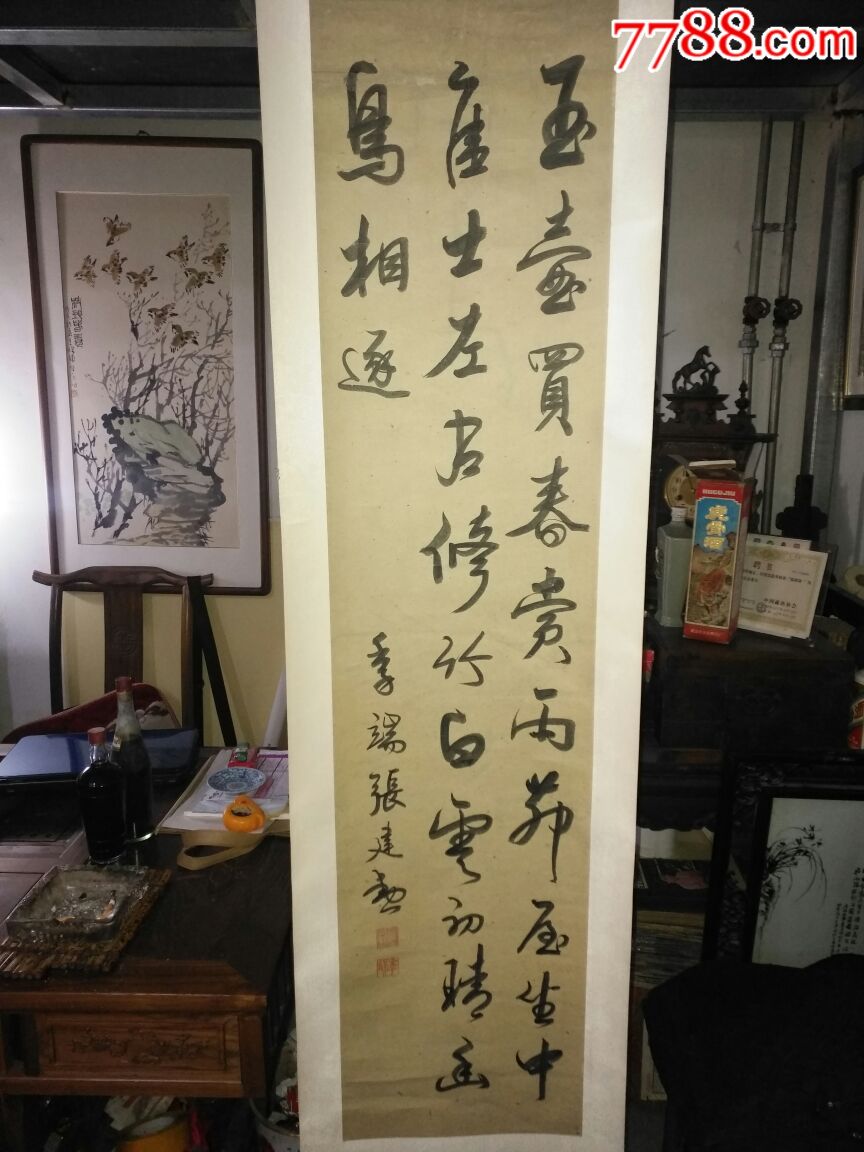 7788.com
玉壺買春賞雨茆屋坐中
隹士左右修竹白雲初晴幽
鳥相逐
季端張建勳
HUGUJIU
虎骨酒